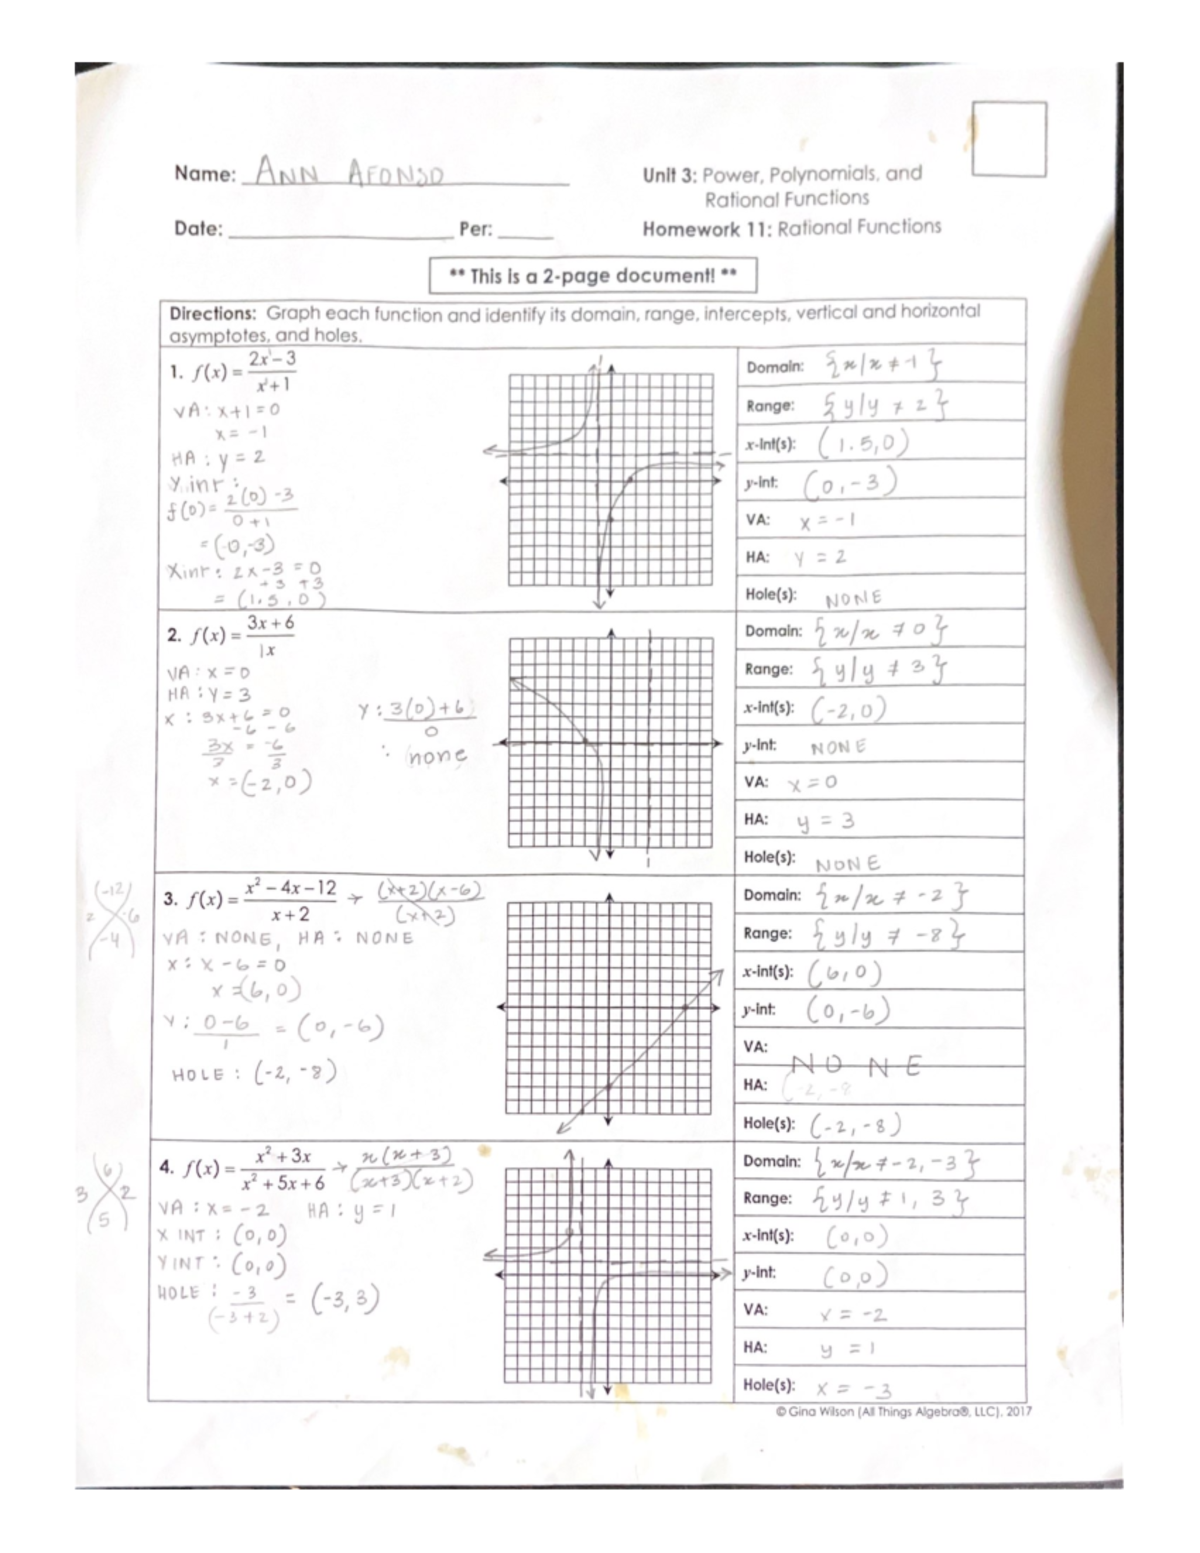 Name: ANN AFONSO
Unit 3: Power, Polynomials, and
Rational Functions
Date: ____ Per: ____
Homework 11: Rational Functions
** This is a 2-page document! **
Directions: Graph each function and identify its domain, range, intercepts, vertical and horizontal
asymptotes, and holes.
1. f(x) = (2x - 3)/(x + 1)
VA: x+1=0
x = -1
HA: y = 2
Y.int:
f(0) = (2(0)-3)/(0+1)
= (0,-3)
Xint: 2x-3 = 0
+3 +3
= (1.5, 0)
Domain: {x/x ≠ -1}
Range: {y/y ≠ 2}
x-int(s): (1.5,0)
y-int: (0,-3)
VA: x = -1
HA: Y = 2
Hole(s): NONE
2. f(x) = (3x + 6)/1x
VA: x = 0
HA: Y = 3
x: 3x+6 = 0
-6 -6
3x/3 = -6/3
x = (-2,0)
Y: (3(0)+6)/0
: none
Domain: {x/x ≠ 0}
Range: {y/y ≠ 3}
x-int(s): (-2,0)
y-int: NONE
VA: x = 0
HA: y = 3
Hole(s): NONE
(-12)
2 -6
(-4)
3. f(x) = (x² - 4x - 12)/(x + 2) → (x+2)(x-6)/(x+2)
VA: NONE, HA: NONE
x: x - 6 = 0
x = (6,0)
Y: (0-6)/1 = (0,-6)
HOLE: (-2, -8)
Domain: {x/x ≠ -2}
Range: {y/y ≠ -8}
x-int(s): (6,0)
y-int: (0,-6)
VA:
NONE
HA: (-2, -8
Hole(s): (-2, -8)
(6)
3 2
(5)
4. f(x) = (x² + 3x)/(x² + 5x + 6) → x(x+3)/(x+3)(x+2)
VA: x = -2 HA: y = 1
X INT: (0,0)
Y INT: (0,0)
HOLE: -3/(-3+2) = (-3, 3)
Domain: {x/x ≠ -2, -3}
Range: {y/y ≠ 1, 3}
x-int(s): (0,0)
y-int: (0,0)
VA: x = -2
HA: y = 1
Hole(s): x = -3
© Gina Wilson (All Things Algebra®, LLC), 2017